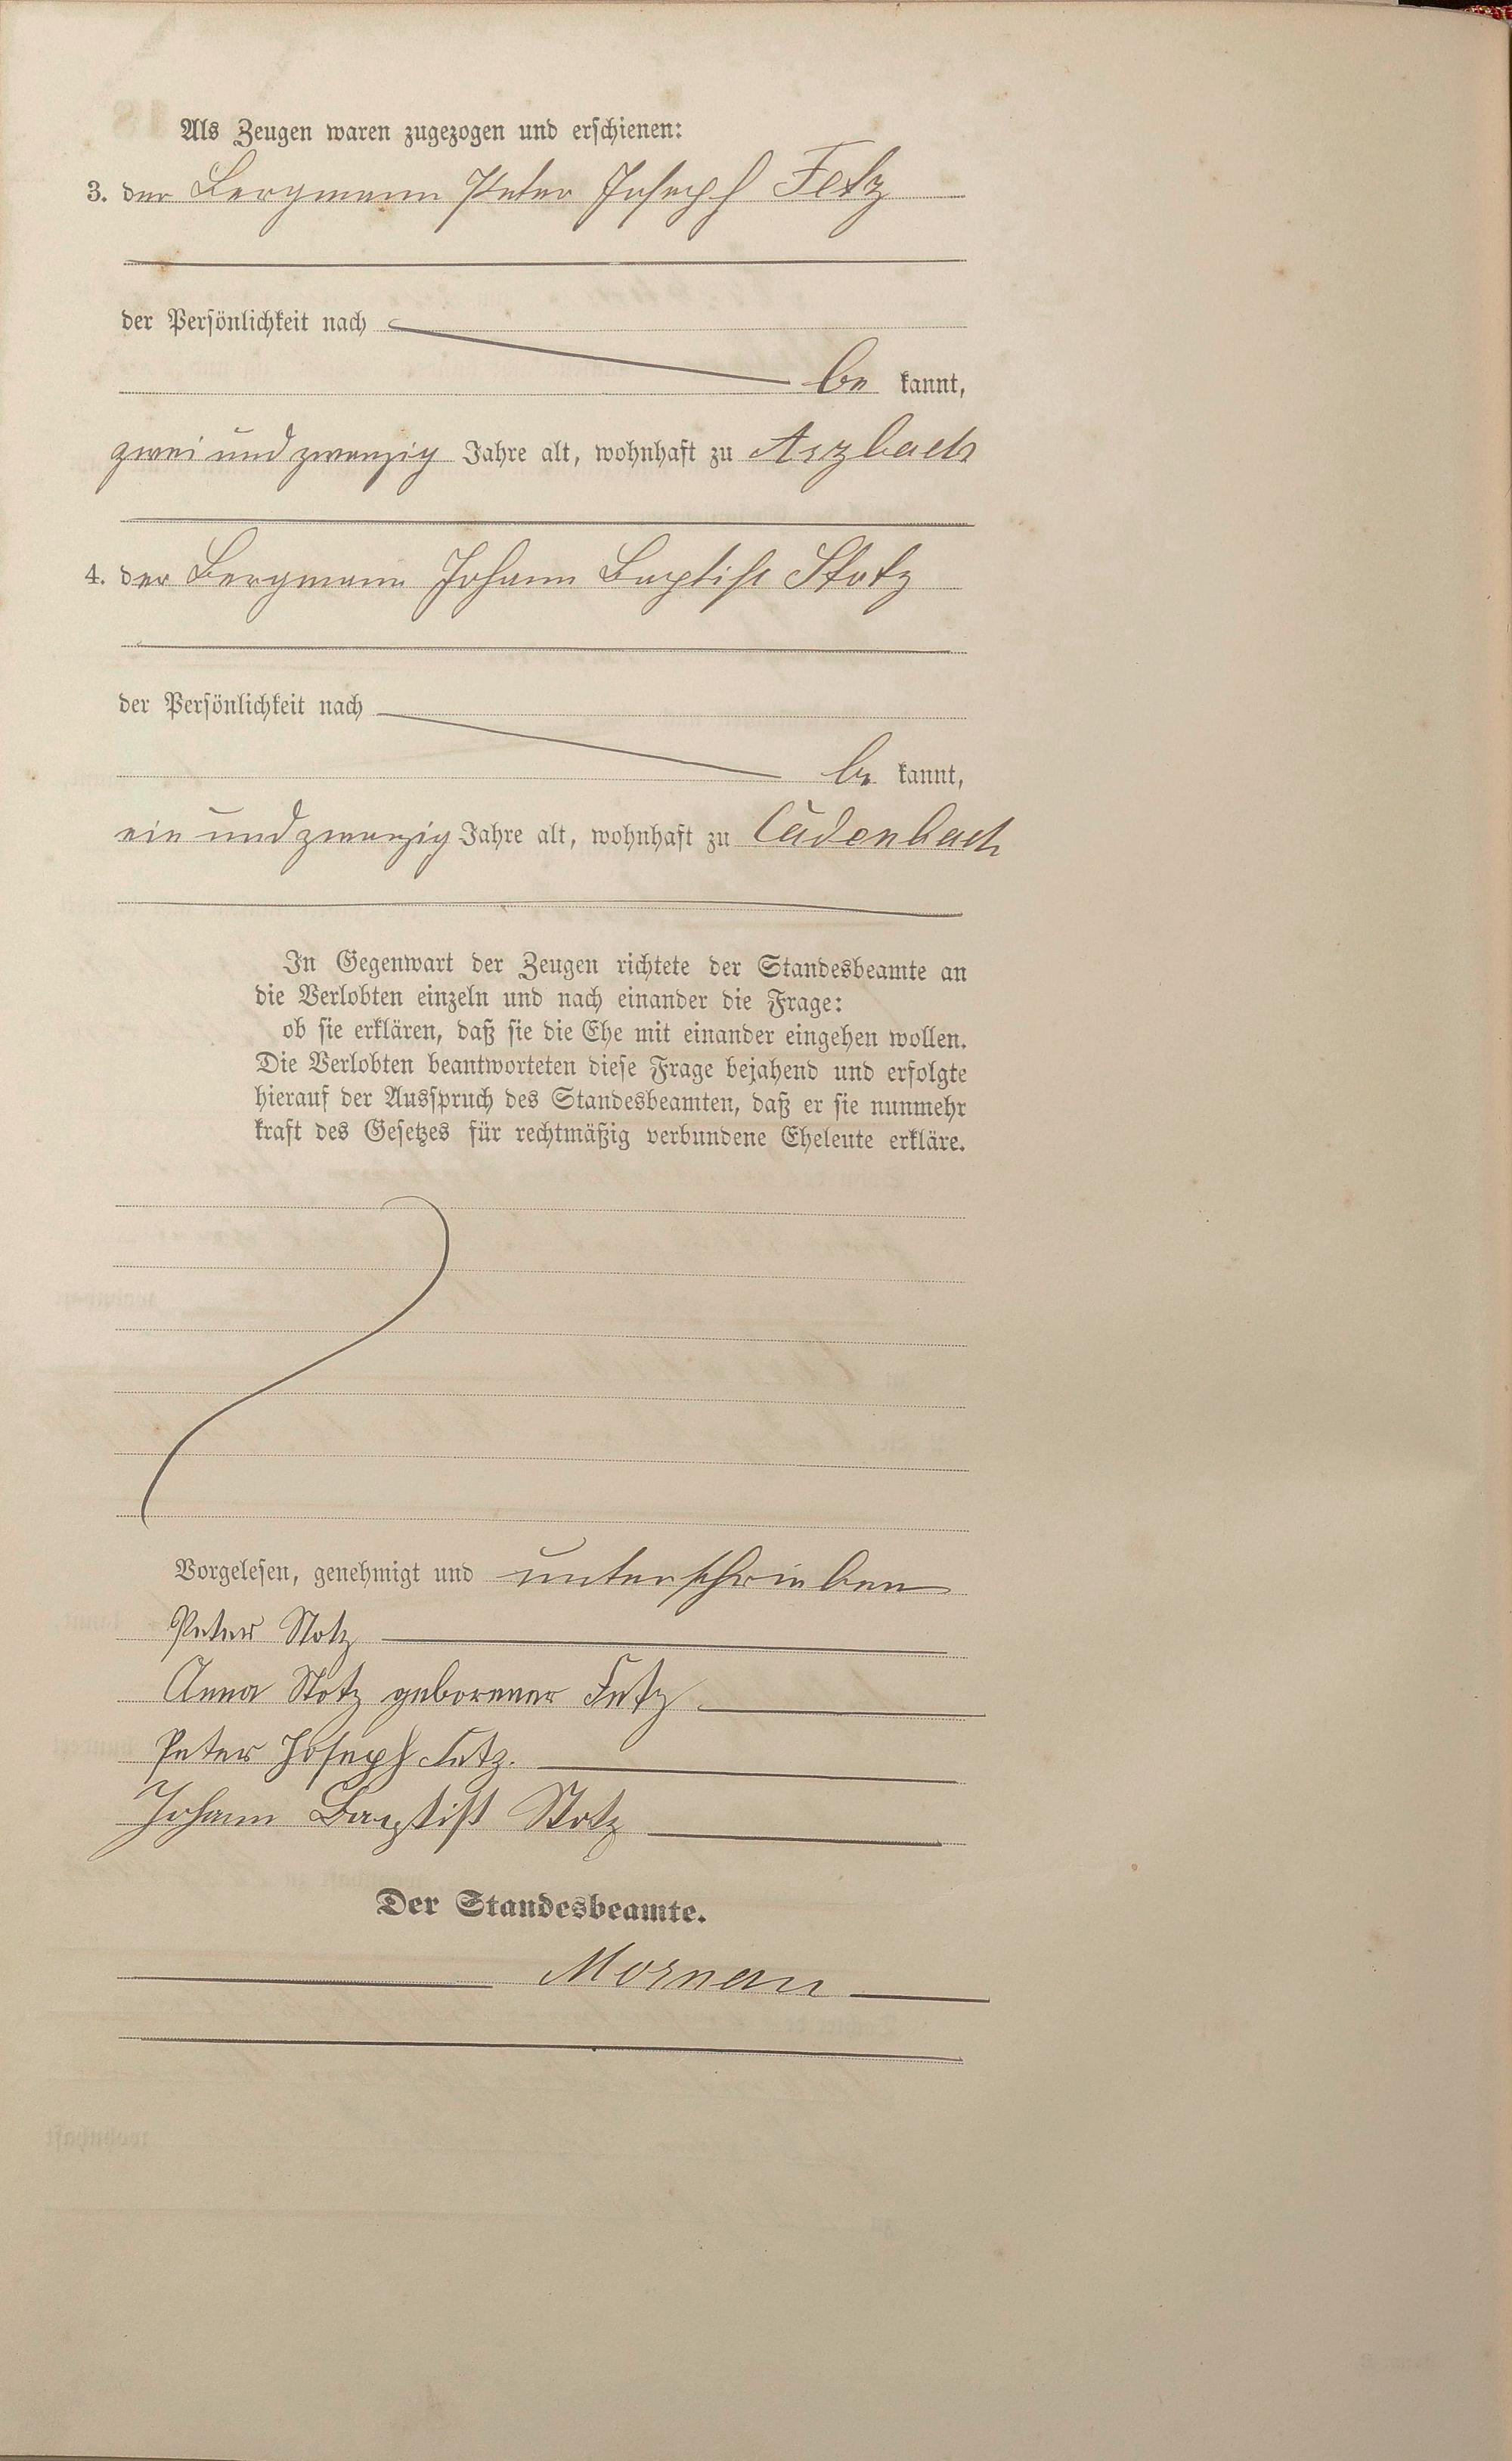 Als Zeugen waren zugezogen und erschienen:
3. der Bergmann Peter Joseph Fetz
der Persönlichkeit nach
be kannt,
zwei und zwanzig Jahre alt, wohnhaft zu Arzbach
4. der Bergmann Johann Baptist Stotz
der Persönlichkeit nach
be kannt,
ein und zwanzig Jahre alt, wohnhaft zu Cadenbach
In Gegenwart der Zeugen richtete der Standesbeamte an
die Verlobten einzeln und nach einander die Frage:
ob sie erklären, daß sie die Ehe mit einander eingehen wollen.
Die Verlobten beantworteten diese Frage bejahend und erfolgte
hierauf der Ausspruch des Standesbeamten, daß er sie nunmehr
kraft des Gesetzes für rechtmäßig verbundene Eheleute erkläre.
Vorgelesen, genehmigt und unterschrieben
Peter Stotz
Anna Stotz geborener Fetz
Peter Joseph Fetz.
Johann Baptist Stotz
Der Standesbeamte.